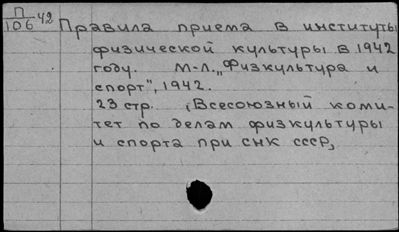 П
106 42
Правила приема в институты
физической культуры в 1942
году. М-Л. „Физкультура и
спорт", 1942.
23 стр. (Всесоюзный коми-
тет по делам физкультуры
и спорта при СНК СССР)